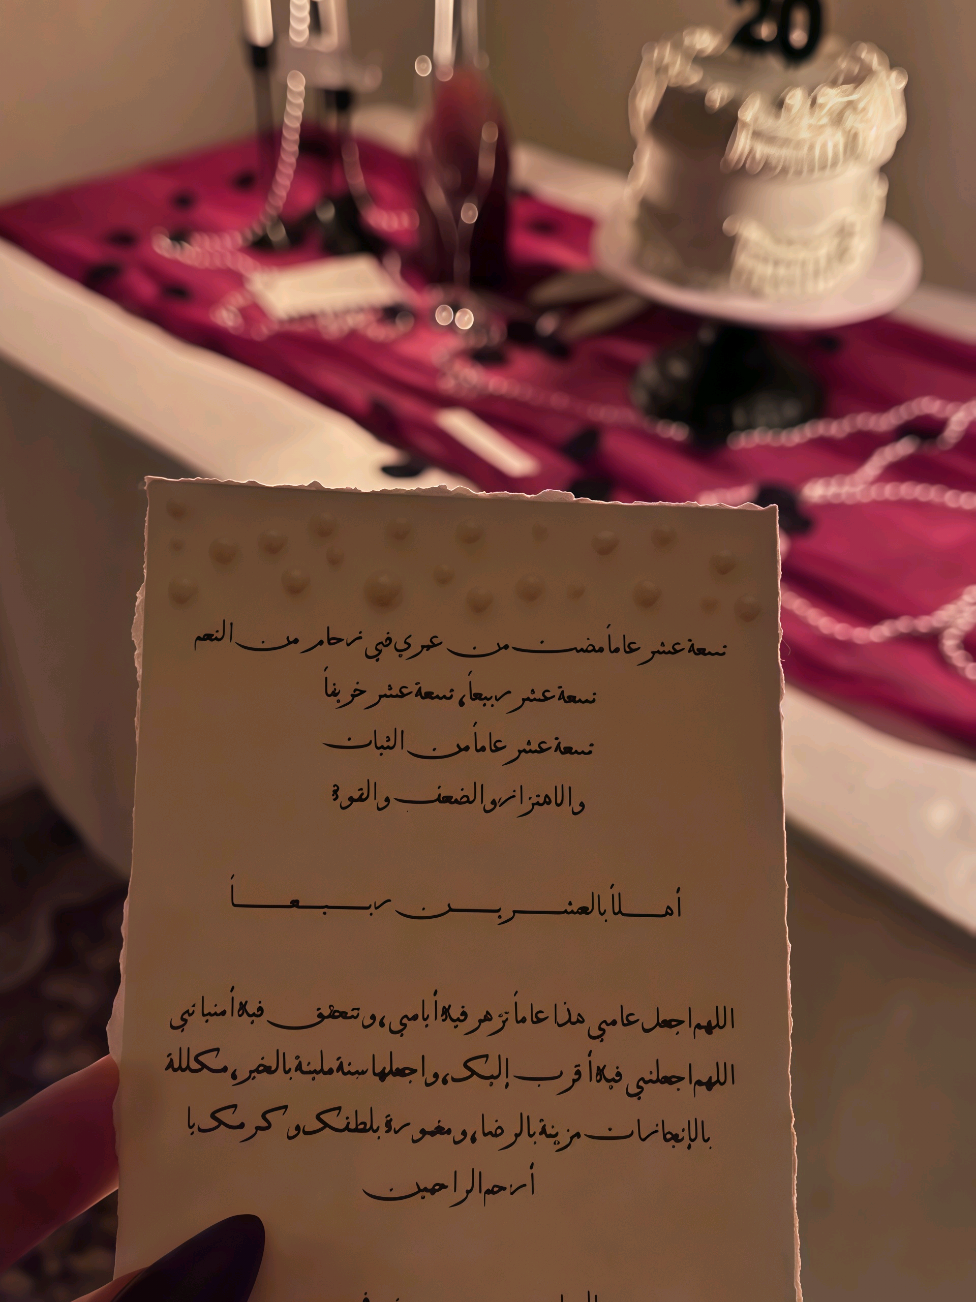 20
تسعة عشر عاماً مضت من عمري في زحام من النعم
تسعة عشر ربيعاً، تسعة عشر خريفاً
تسعة عشر عاماً من الثبات
والاهتزاز والضعف والقوة
أهلاً بالعشرين ربيعاً
اللهم اجعل عامي هذا عاماً تزهر فيه أيامي، وتتحقق فيه أمنياتي
اللهم اجعلني فيه أقرب إليك، واجعلها سنة مليئة بالخير، مكللة
بالإنجازات مزينة بالرضا، ومغمورة بلطفك وكرمك يا
أرحم الراحمين